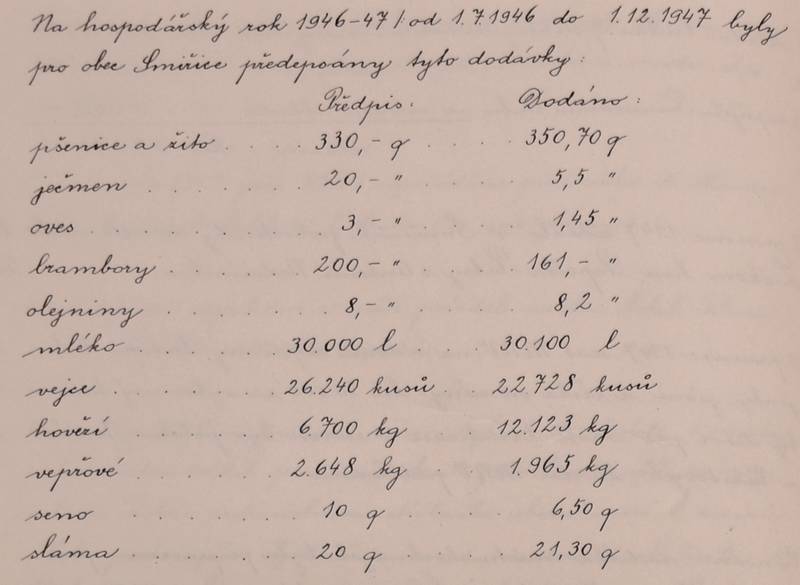 Na hospodářský rok 1946-47 /: od 1.7.1946 do 1.12.1947 byly
pro obec Smiřice předepsány tyto dodávky:
Předpis: Dodáno:
pšenice a žito . . . . 330,- q . . . . 350,70 q
ječmen . . . . . 20,- " . . . 5,5 "
oves . . . . . . 3,- " . . . 1,45 "
brambory . . . . 200,- " . . . 161,- "
olejniny . . . . 8,- " . . . 8,2 "
mléko . . . . . 30.000 l . . 30.100 l
vejce . . . . . 26.240 kusů . 22.728 kusů
hovězí . . . . . 6.700 kg . . 12.123 kg
vepřové . . . . 2.648 kg . . 1.965 kg
seno . . . . . . 10 q . . . 6,50 q
sláma . . . . . 20 q . . . 21,30 q